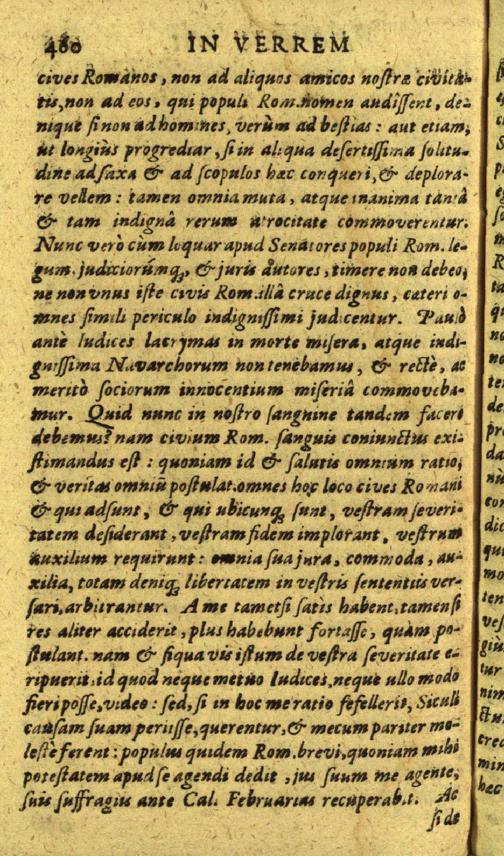 480 IN VERREM
cives Romanos, non ad aliquos amicos nostræ civita-
tis, non ad eos, qui populi Rom. nomen audissent, de-
nique si non ad homines, verùm ad bestias: aut etiam,
ut longiùs progrediar, si in aliqua desertissima solitu-
dine ad saxa & ad scopulos hæc conqueri, & deplora-
re vellem: tamen omnia muta, atque inanima tantâ
& tam indignâ rerum atrocitate commoverentur.
Nunc verò cùm loquar apud Senatores populi Rom. le-
gum, judiciorúmq;, & juris autores, timere non debeo,
ne non vnus iste civis Rom. illâ cruce dignus, cæteri o-
mnes simili periculo indignissimi judicentur. Paulò
antè Iudices lacrymas in morte misera, atque indi-
gnissima Navarchorum non tenebamus, & rectè, ac
meritò sociorum innocentium miseriâ commoveba-
mur. Quid nunc in nostro sanguine tandem facere
debemus? nam civium Rom. sanguis coniunctus exi-
stimandus est: quoniam id & salutis omnium ratio,
& veritas omniũ postulat. omnes hoc loco cives Romani
& qui adsunt, & qui ubicunq; sunt, vestram severi-
tatem desiderant, vestram fidem implorant, vestrum
auxilium requirunt: omnia sua jura, commoda, au-
xilia, totam deniq; libertatem in vestris sententiis ver-
sari, arbitrantur. A me tametsi satis habent, tamen si
res aliter acciderit, plus habebunt fortasse, quàm po-
stulant. nam & si qua vis istum de vestra severitate e-
ripuerit, id quod neque metuo Iudices, neque ullo modo
fieri posse, video: sed, si in hoc me ratio fefellerit, Siculi
causam suam periisse, querentur, & mecum pariter mo-
lestè ferent: populus quidem Rom. brevi, quoniam mihi
potestatem apud se agendi dedit, jus suum me agente,
suis suffragiis ante Cal. Februarias recuperabit. Ac
si de